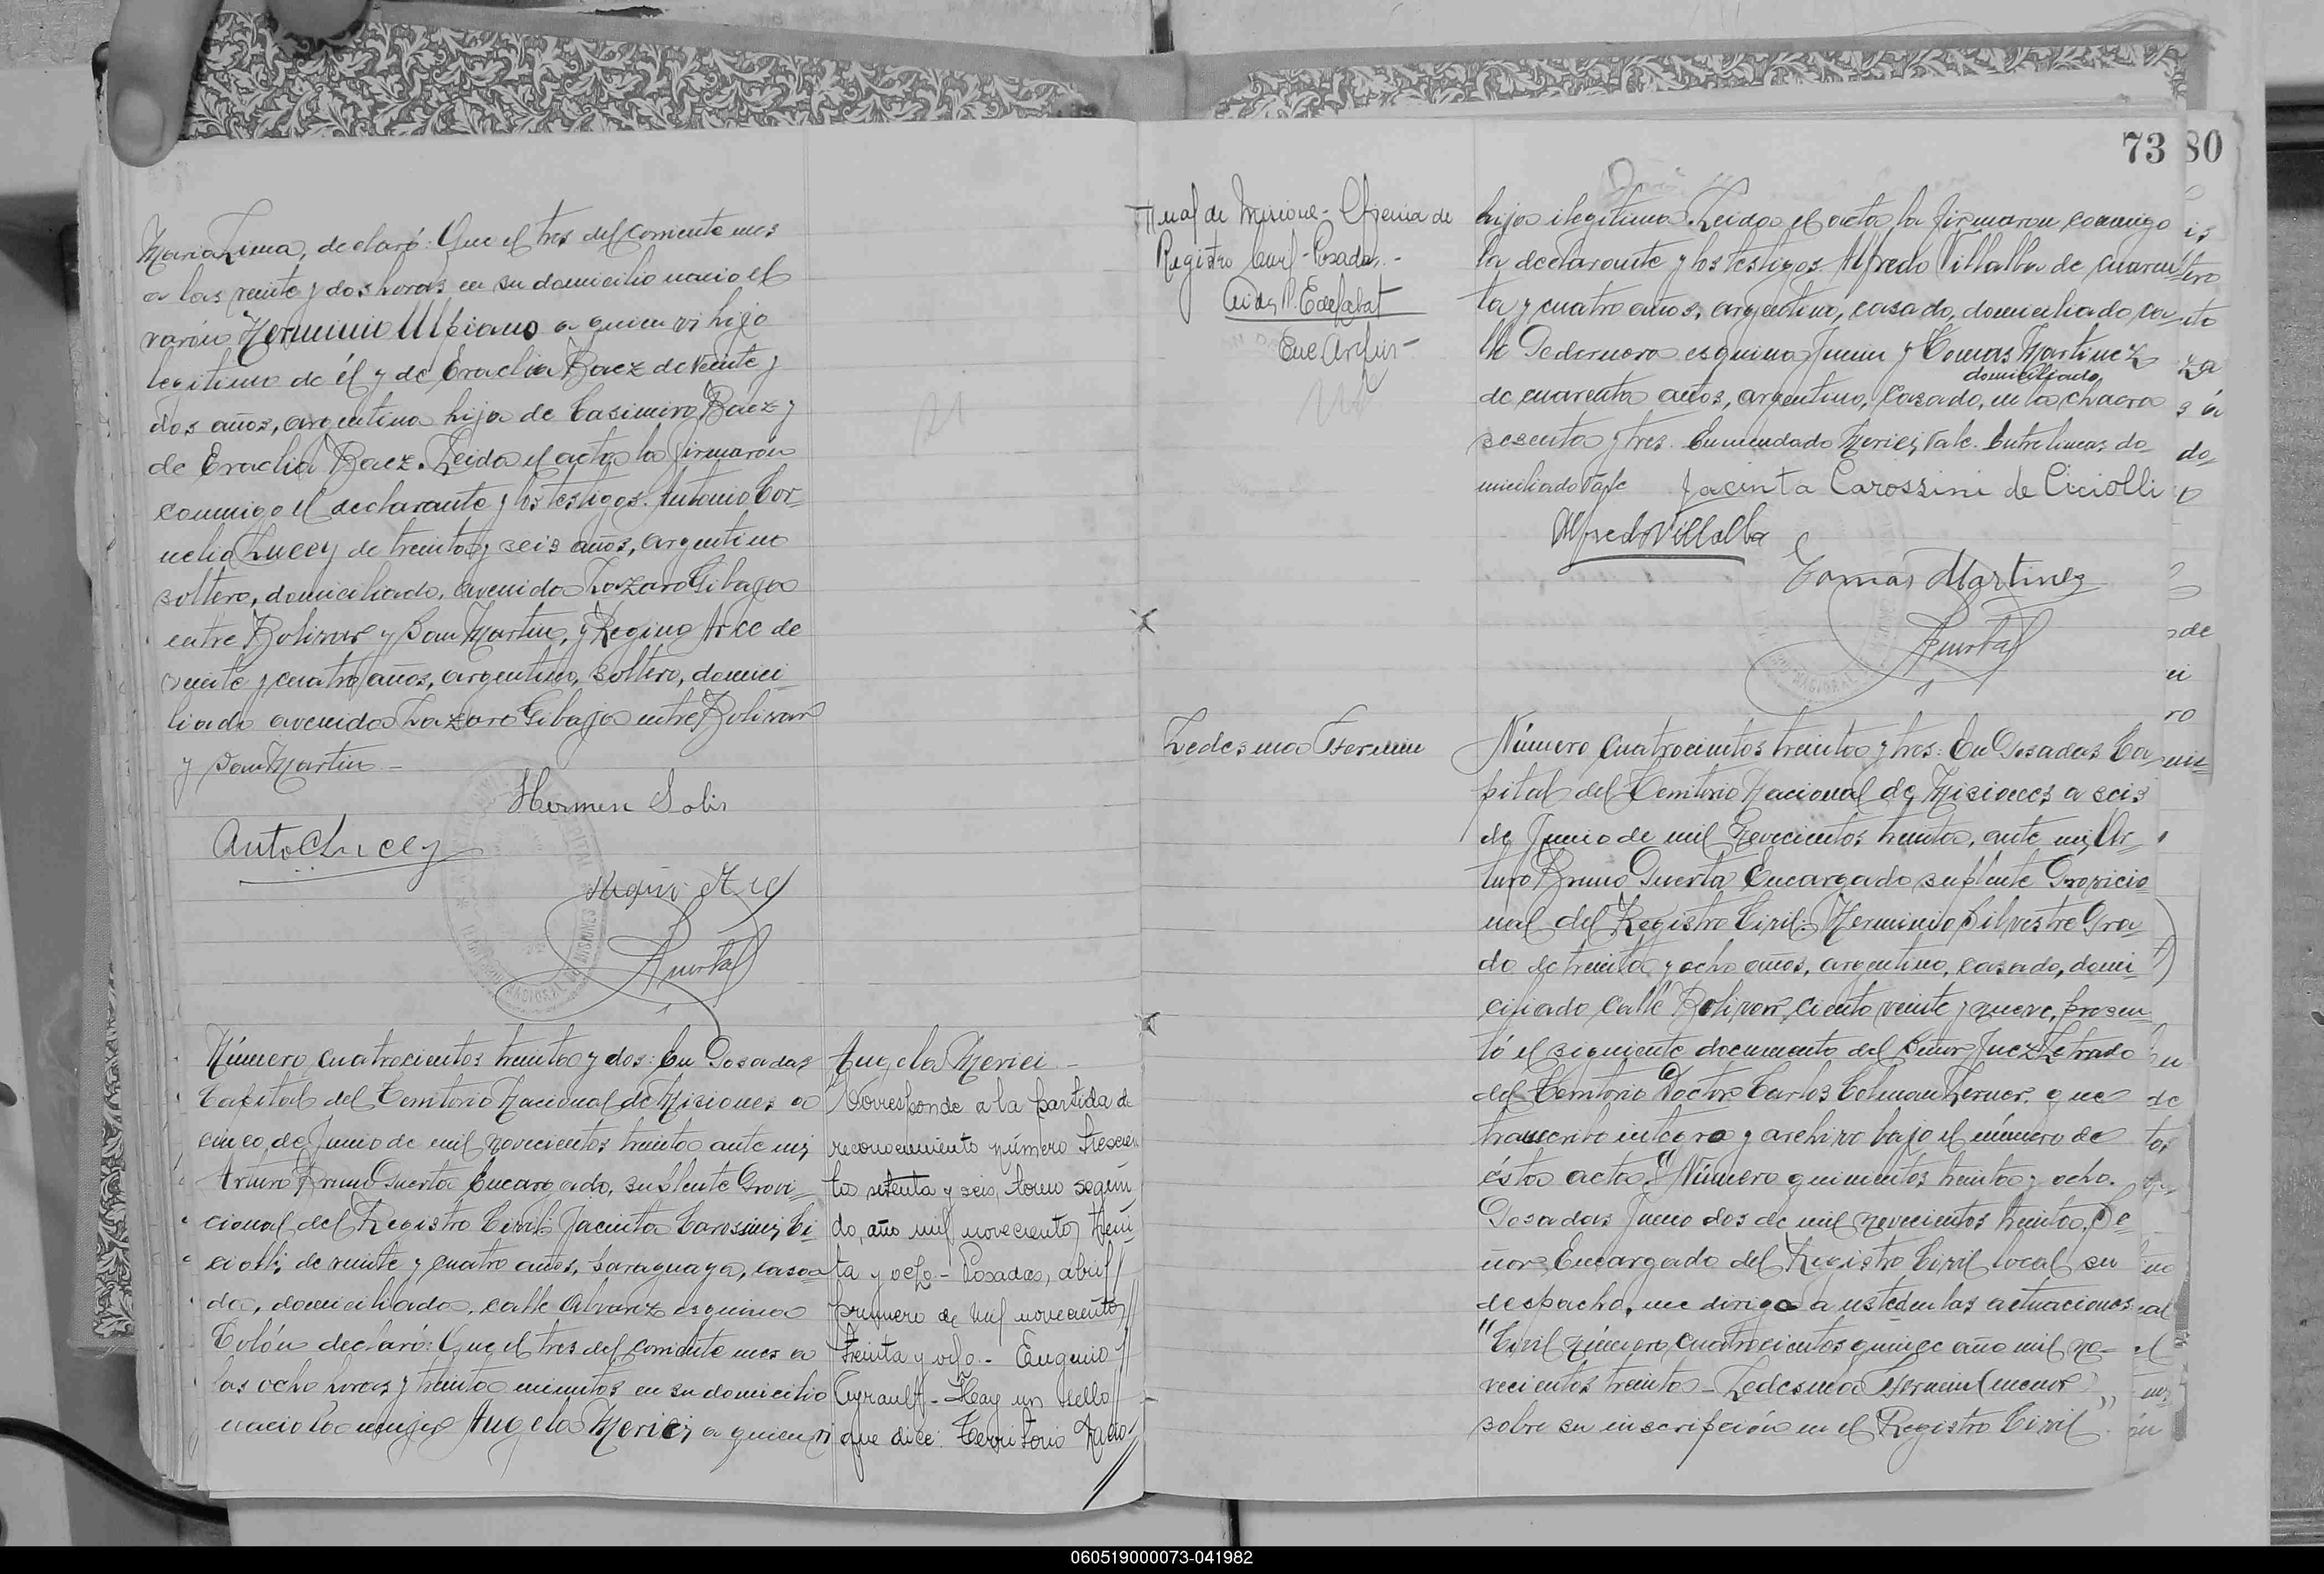 Maria Lima, declaró: Que el tres del corriente mes
a las veinte y dos horas en su domicilio nació el
varón Herminio Ulpiano a quien vi hijo
legitimo de él y de Eraclia Baez de veinte y
dos años, argentina hija de Casimiro Baez y
de Eraclia Baez. Leida el acta la firmaron
conmigo el declarante y los testigos. Antonio Cor-
nelio Lucey de treinta y seis años, argentino
soltero, domiciliado, avenida Lazaro Gibaja
entre Bolivar y San Martin, y Regino Arce de
veinte y cuatro años, argentino, soltero, domici-
liado avenida Lazaro Gibaja entre Bolivar
y San Martin -
Hermen Solis
Anto C Lucey
Regino Arce
Puerta
Número cuatrocientos treinta y dos: En Posadas
Capital del Territorio Nacional de Misiones a
cinco de Junio de mil novecientos treinta ante mi,
Arturo Bruno Puerta Encargado, suplente Provi-
cional del Registro Civil: Jacinta Carossini, Ci-
ciolli; de veinte y cuatro años, paraguaya, casa-
da, domiciliada, calle Alvarez esquina
Colón declaró: Que el tres del corriente mes a
las ocho horas y treinta minutos en su domicilio
nació la mujer Angela Merici, a quien vi
Angela Merici -
Corresponde a la partida de
reconocimiento número trescien
tos setenta y seis, tomo segun
do, año mil novecientos trein
ta y ocho - Posadas, abril
primero de mil novecientos
treinta y ocho - Eugenio
Ayrault - Hay un sello
que dice: Territorio Nacio
73 80
nal de Misiones - Oficina de
Registro Civil - Posadas. -
hija ilegitima. Leida el acta la firmaron conmigo
la declarante y los testigos. Alfredo Villalba de cuaren-
ta y cuatro años, argentino, casado, domiciliado ca-
lle Pedernera esquina Junin y Tomas Martinez
domiciliado
de cuarenta años, argentino, casado, en la chacra
sesenta y tres. Enmendado Merici, vale. Entre lineas, do-
miciliado vale
Jacinta Carossini de Ciciolli
Alfredo Villalba
Tomas Martinez
Puerta
Ledesma Fermin
Número cuatrocientos treinta y tres: En Posadas Ca-
pital del Territorio Nacional de Misiones a seis
de Junio de mil novecientos treinta, ante mi, Ar-
turo Bruno Puerta Encargado suplente Provicio-
nal del Registro Civil: Herminio Silvestre Pra-
do de treinta y ocho años, argentino, casado, domi-
ciliado calle Bolivar, ciento veinte y nueve, presen-
tó el siguiente documento del Señor Juez Letrado
del Territorio Doctor Carlos Colman Lerner, que
transcribo integra y archivo bajo el número de
ésta acta. "Número quinientos treinta y ocho.
Posadas Junio dos de mil novecientos treinta. Se-
ñor Encargado del Registro Civil local su
despacho, me dirijo a usted en las actuaciones
"Civil número, cuatrocientos quince año mil no-
vecientos treinta - Ledesma Fermin (menor)
sobre su inscripción en el Registro Civil"
060519000073-041982